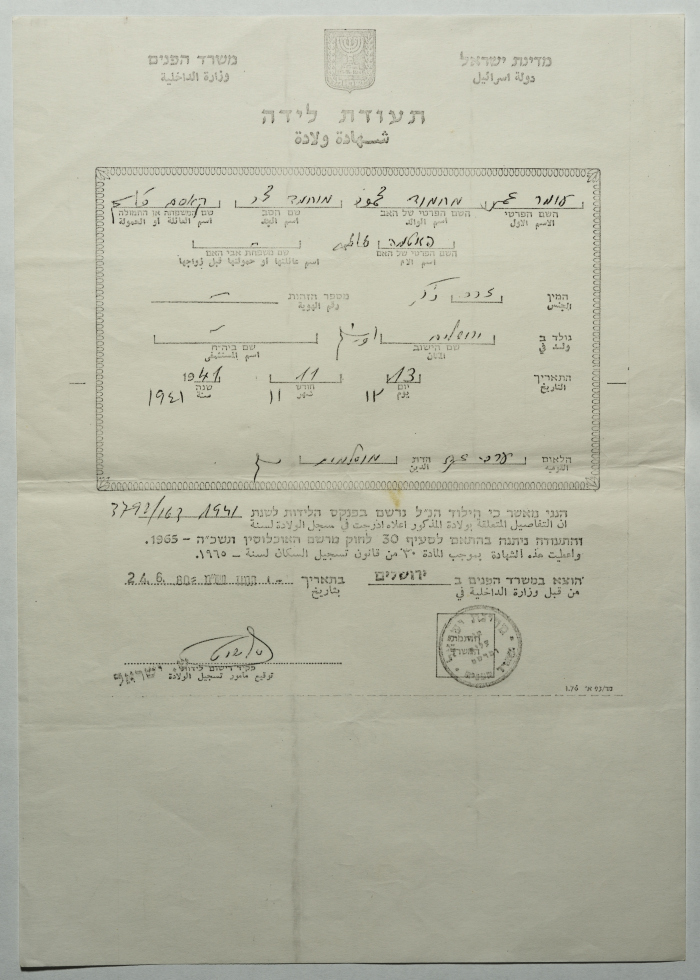 מדינת ישראל משרד הפנים
دولة اسرائيل وزارة الداخلية
תעודת לידה
شهادة ولادة
עומר عمر מחמוד محمود מוחמד קאסם
השם הפרטי השם הפרטי של האב שם הסב שם המשפחה או החמולה
الاسم الاول اسم الوالد اسم الجد اسم العائلة او الحمولة
פאטמה فاطمة
השם הפרטי של האם שם משפחת אבי האם
اسم الام اسم عائلتها او حمولتها قبل زواجها
המין זכר ذكر מספר הזהות
الجنس رقم الهوية
נולד ב ירושלים
ولد في שם הישוב שם ביה״ח
المكان اسم المستشفى
התאריך 13 11 1941
التاريخ יום חודש שנה
يوم شهر سنة
١٣ ١١ ١٩٤١
הלאום ערבי הדת מוסלמית
القومية الدين
הנני מאשר כי הילוד הנ״ל נרשם בפנקס הלידות לשנת 1941
ان التفاصيل المتعلقة بولادة المذكور اعلاه ادرجت في سجل الولادة لسنة
והתעודה ניתנה בהתאם לסעיף 30 לחוק מרשם האוכלוסין תשכ״ה – 1965.
واعطيت هذه الشهادة بموجب المادة ٣٠ من قانون تسجيل السكان لسنة ١٩٦٥.
הוצא במשרד הפנים ב ירושלים בתאריך
من قبل وزارة الداخلية في بتاريخ
פקיד רישום לידות
توقيع مأمور تسجيل الولادة
1.76